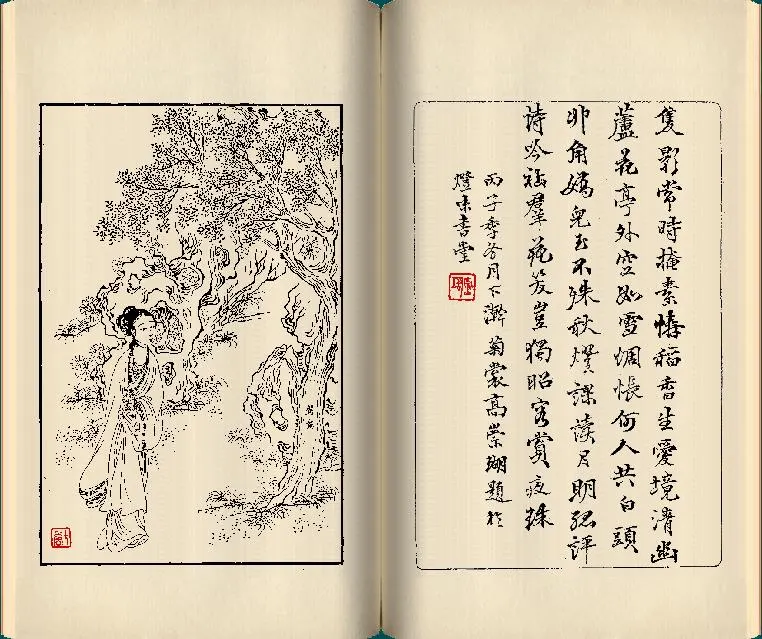 隻影常時掩素幬稻香生愛境清幽
蘆花亭外空如雪惆悵何人共白頭
丱角嬌兒玉不殊秋燈課讀月明孤評
詩吟羣花笈豈獨昭容賞夜珠
丙子季冬月下澣菊裳高崇瑚題於
燈味書堂